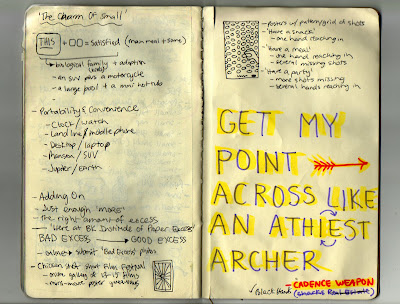 'The Charm of Small'
THIS + = Satisfied (main meal + some)
biological family + adoption
- an SUV plus a motorcycle
- a large pool + a mini hot tub
Portability & Convenience
- Clock / watch
- Land line / mobile phone
- Desktop / laptop
- Mansion / SUV
- Jupiter / Earth
Adding On
- Just enough "more"
- The right amount of excess
Were at BK Institute of Paper Excess
BAD EXCESS → GOOD EXCESS
submit 'Bad Excess' photos
- Chicken Shot Short Film Festival
- movie galas of 12-15 films
- posters w/ pattern/grid of shots
- 'Have a snack'
- one hand reaching in
- 'Have a meal'
- one hand reaching in
- several missing shots
- 'Have a party!'
- more shots missing
- several hands reaching in
GET MY
POINT
ACROSS LIKE
AN ATHIEST
ARCHER
- CADENCE WEAPON
"Black Hand" (Sharks Real Estate)